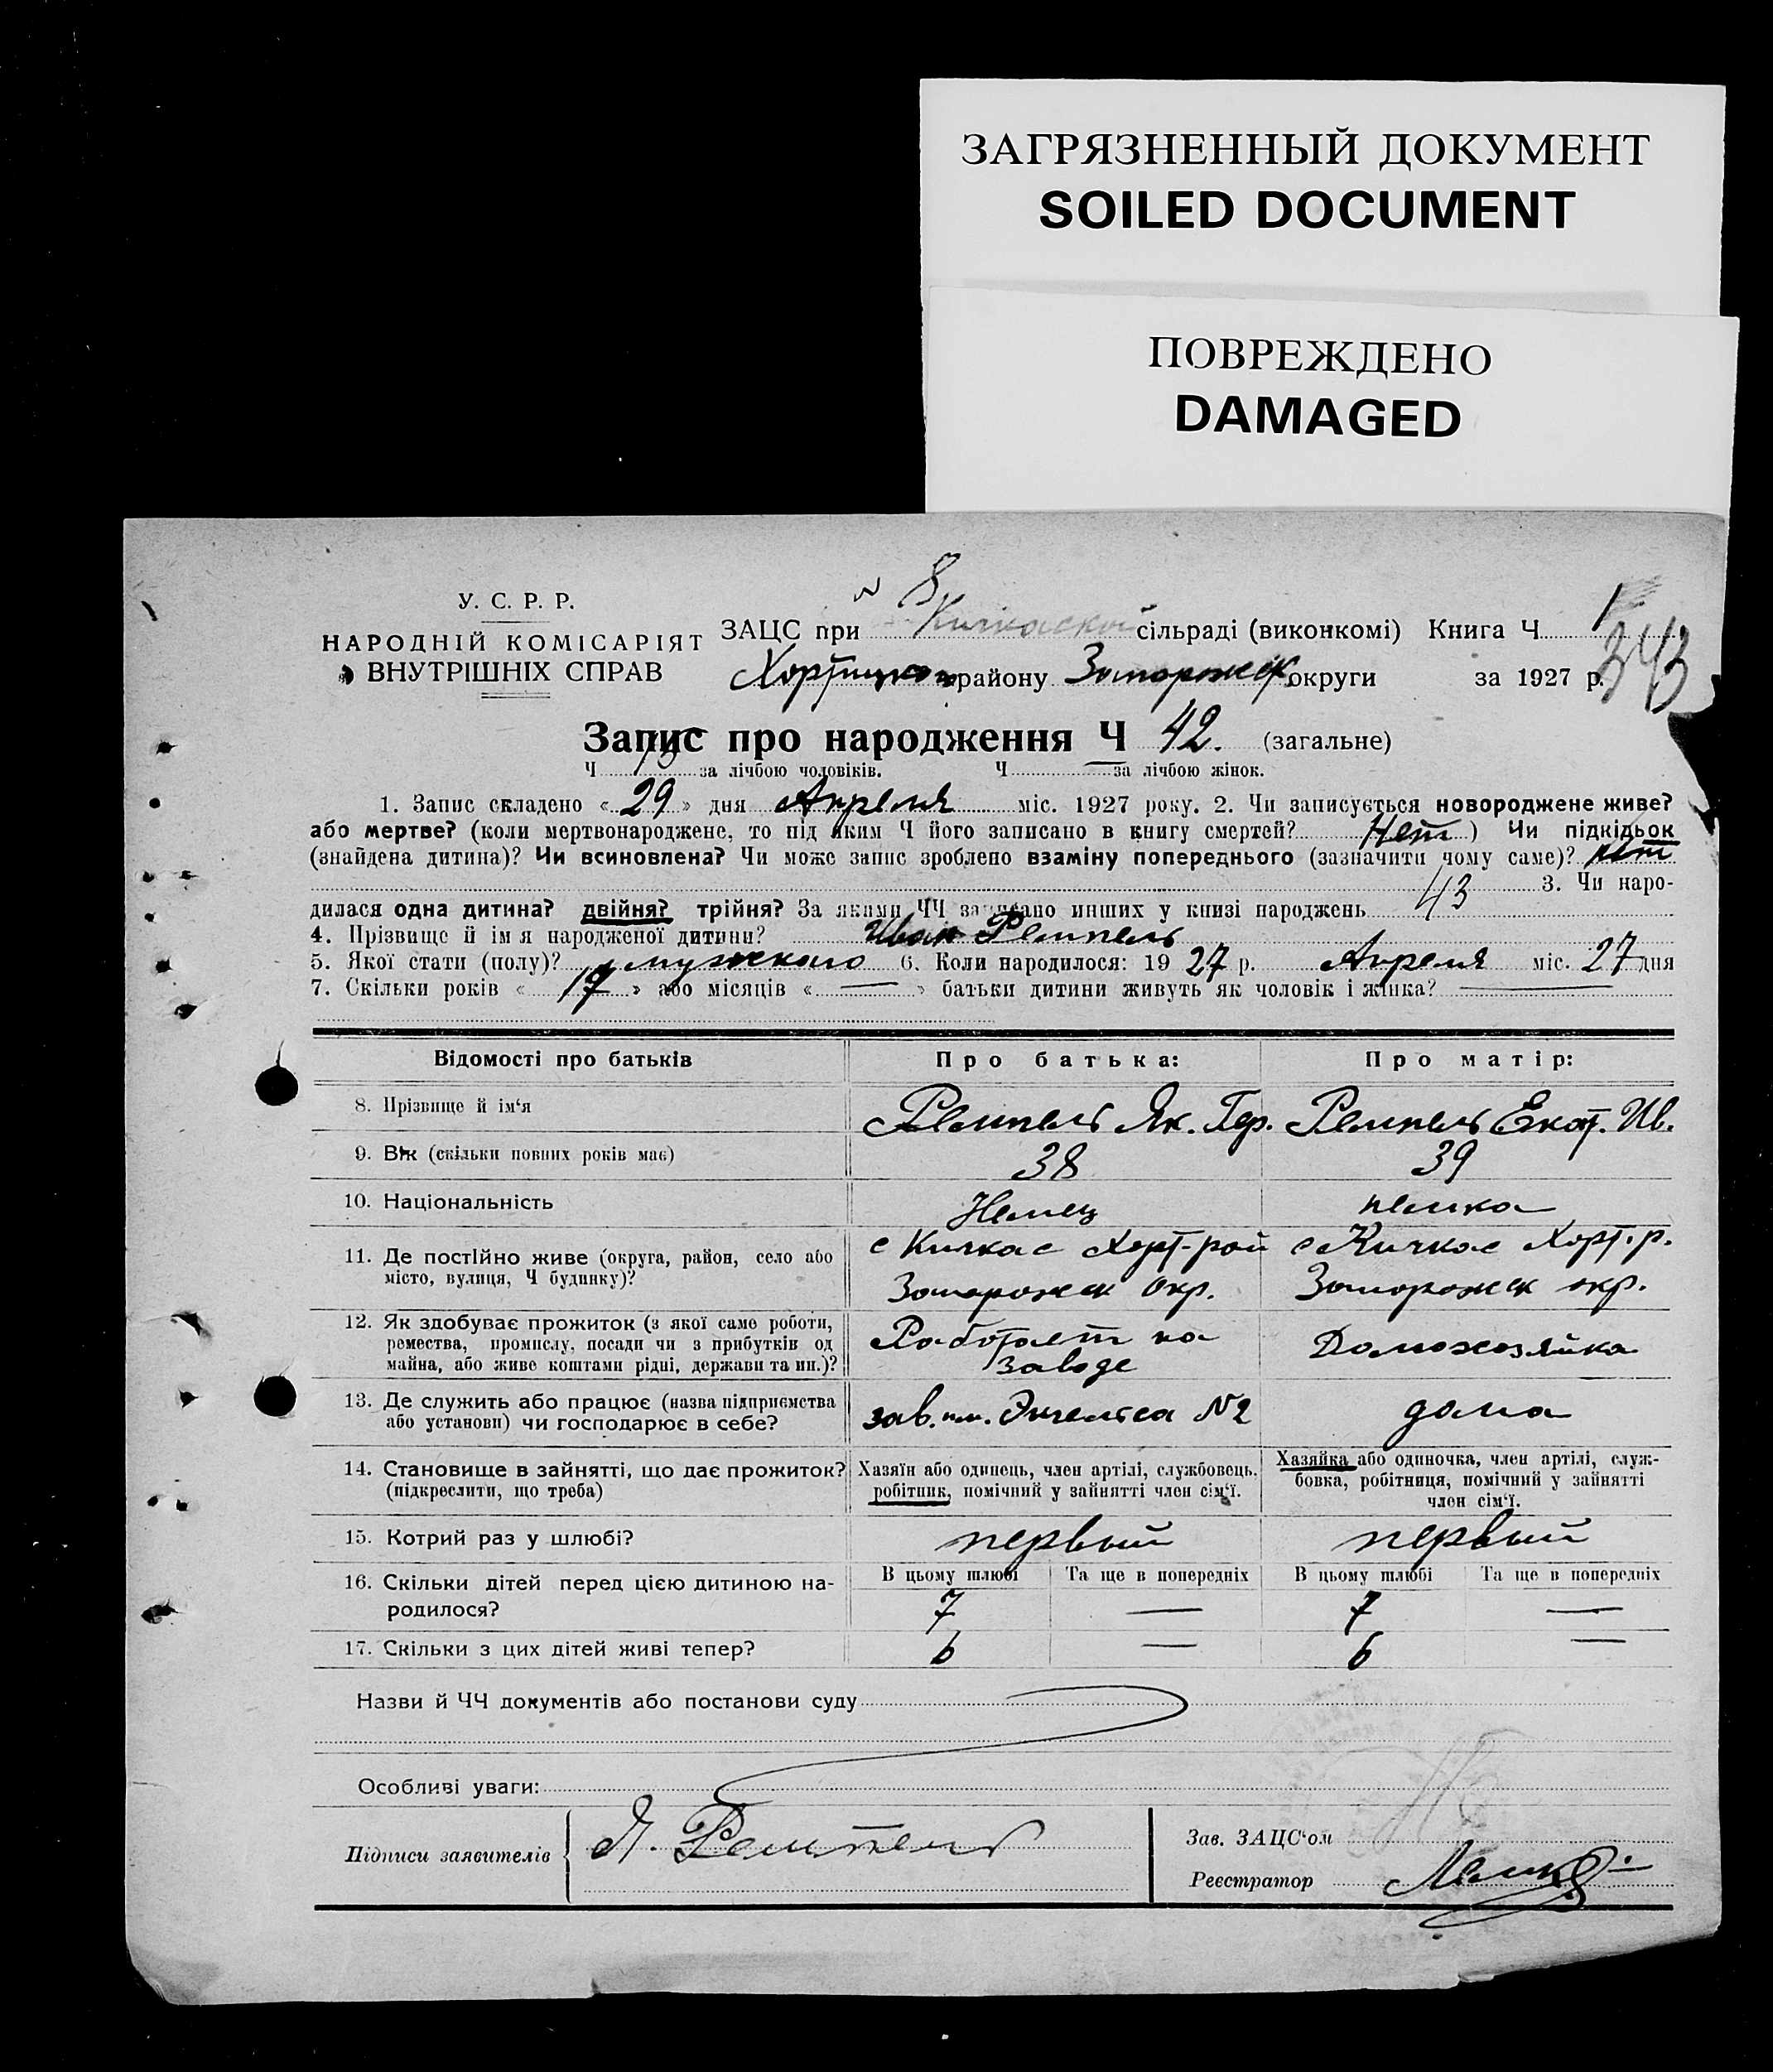 ЗАГРЯЗНЕННЫЙ ДОКУМЕНТ
SOILED DOCUMENT
ПОВРЕЖДЕНО
DAMAGED
У. С. Р. Р.
НАРОДНІЙ КОМІСАРІЯТ
ВНУТРІШНІХ СПРАВ
N 8
ЗАЦС при Кичкаской сільраді (виконкомі) Книга Ч 1
343
Хортицкого району Запорожск. округи за 1927 р.
Запис про народження Ч 42. (загальне)
Ч за лічбою чоловіків. Ч за лічбою жінок.
1. Запис складено « 29 » дня Апреля міс. 1927 року. 2. Чи записується новороджене живе?
або мертве? (коли мертвонароджене, то під яким Ч його записано в книгу смертей? Нет ) Чи підкідьок
(знайдена дитина)? Чи всиновлена? Чи може запис зроблено взаміну попереднього (зазначити чому саме)? нет
3. Чи наро-
дилася одна дитина? двійня? трійня? За якими ЧЧ записано инших у книзі народжень 43
4. Прізвище й ім я народженої дитини? Иван Ремпель
5. Якої стати (полу)? мужского 6. Коли народилося: 19 27 р. Апреля міс. 27 дня
7. Скільки років « 17 » або місяців « — » батьки дитини живуть як чоловік і жінка? —
Відомості про батьків Про батька: Про матір:
8. Прізвище й ім‘я Ремпель Як. Гер. Ремпель Екат. Ив.
9. Вік (скільки повних років має) 38 39
10. Національність Немец немка
11. Де постійно живе (округа, район, село або місто, вулиця, Ч будинку)?
с Кичкас Хорт-рай с Кичкас Хорт. р.
Запорожск окр. Запорожск окр.
12. Як здобуває прожиток (з якої саме роботи,
ремества, промислу, посади чи з прибутків од
майна, або живе коштами рідні, держави та ин.)?
Работает на заводе Домохозяйка
13. Де служить або працює (назва підприємства
або установи) чи господарює в себе?
зав. им. Энгельса N2 дома
14. Становище в зайнятті, що дає прожиток?
(підкреслити, що треба)
Хазяїн або одинець, член артілі, службовець,
робітник, помічний у зайнятті член сім‘ї.
Хазяйка або одиночка, член артілі, служ-
бовка, робітниця, помічний у зайнятті
член сім‘ї.
15. Котрий раз у шлюбі? первый первый
16. Скільки дітей перед цією дитиною на-
родилося?
В цьому шлюбі Та ще в попередніх В цьому шлюбі Та ще в попередніх
7 — 7 —
17. Скільки з цих дітей живі тепер? 6 — 6 —
Назви й ЧЧ документів або постанови суду
Особливі уваги:
Підписи заявителів Я. Ремпель
Зав. ЗАЦС‘ом
Реєстратор